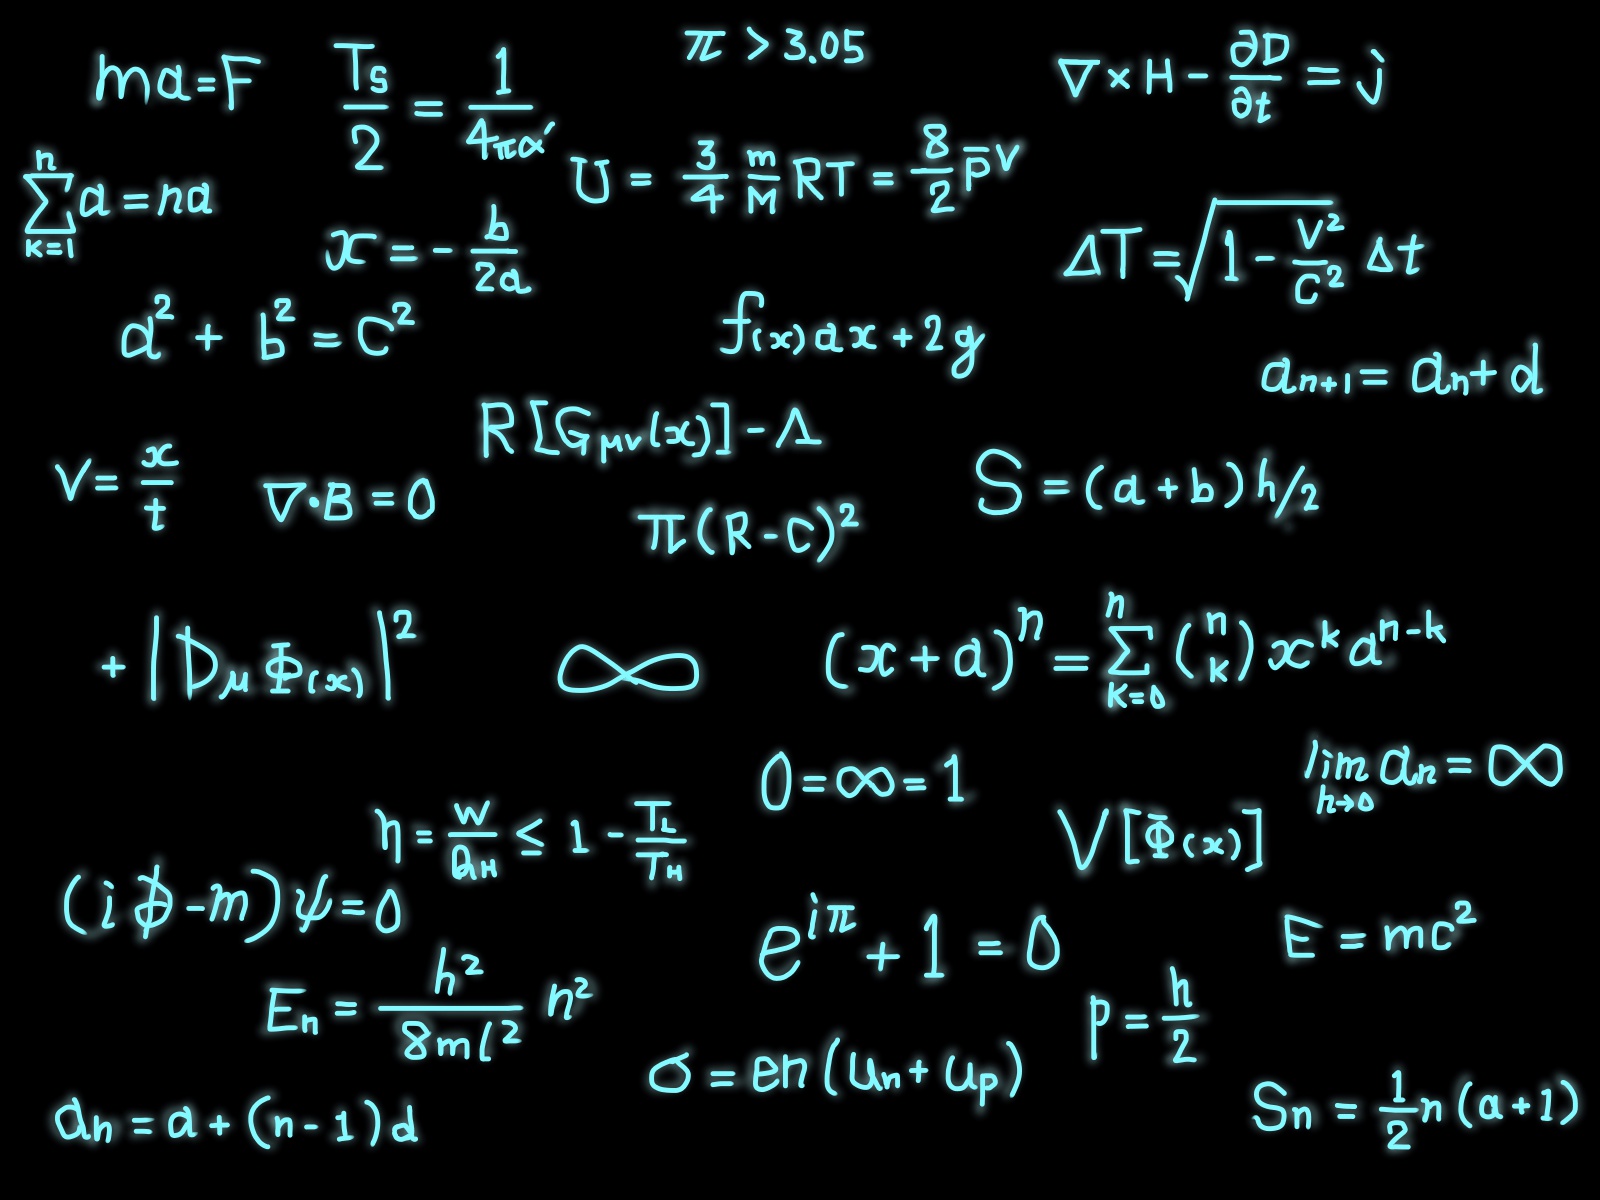 ma=F
Ts/2 = 1/4πα′
π > 3.05
∇×H − ∂D/∂t = j
∑ₖ₌₁ⁿ a = na
x = − b/2a
U = 3/4 m/M RT = 8/2 p̄ᵛ
ΔT = √(1 − v²/c²) Δt
a² + b² = c²
f(x)ax+2g
aₙ₊₁ = aₙ+d
R[Gμν(x)]−Λ
v= x/t
∇·B = 0
S = (a+b)h/2
π(R−C)²
+|DμΦ(x)|²
∞
(x+a)ⁿ = ∑ₖ₌₀ⁿ (n k) xᵏ aⁿ⁻ᵏ
0=∞=1
lim h→0 aₙ = ∞
η = W/QH ≤ 1 − TL/TH
V[Φ(x)]
(i ϕ−m)ψ=0
e^iπ + 1 = 0
E = mc²
Eₙ = h²/8ml² n²
p = h/2
σ = en(uₙ+uₚ)
aₙ = a+(n−1)d
Sₙ = 1/2 n(a+1)